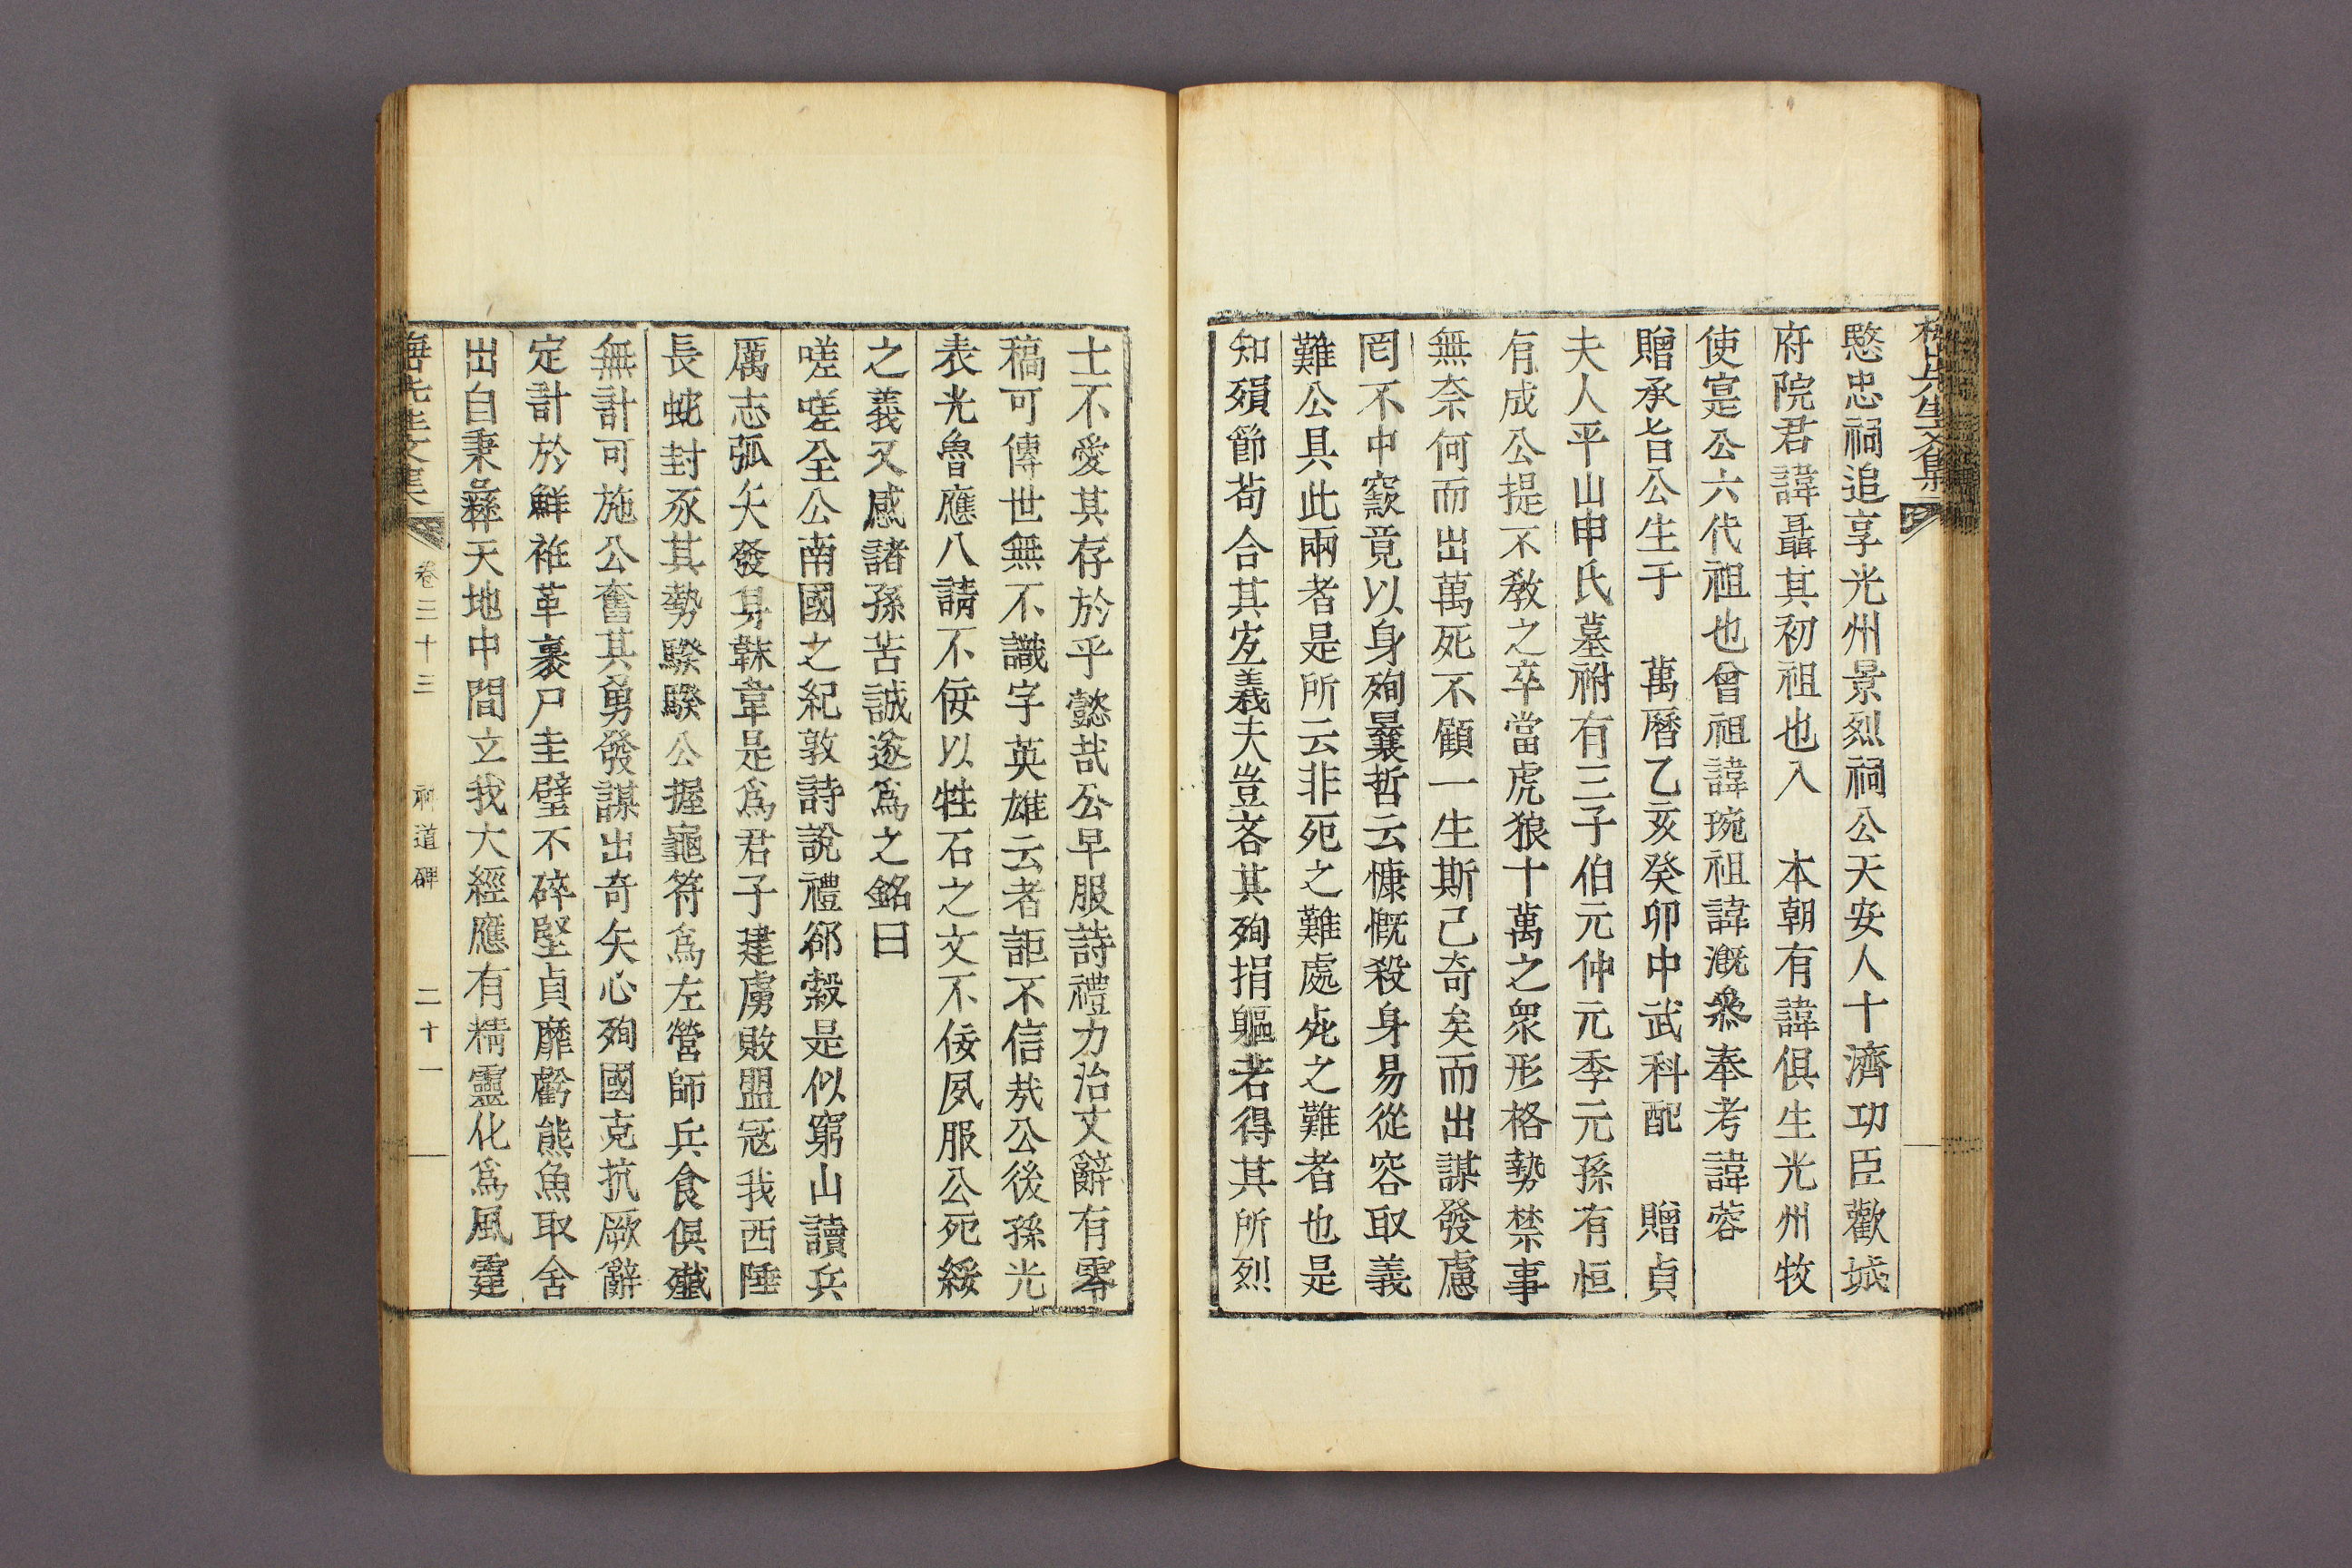 愍忠祠追享光州景烈祠公天安人十濟功臣歡城
府院君諱聶其初祖也入　本朝有諱俱生光州牧
使寔公六代祖也曾祖諱琬祖諱漑叅奉考諱蓉
贈承旨公生于　萬曆乙亥癸卯中武科配　贈貞
夫人平山申氏墓祔有三子伯元仲元季元孫有恒
有成公提不敎之卒當虎狼十萬之衆形格勢禁事
無奈何而出萬死不顧一生斯已奇矣而出謀發慮
罔不中窾竟以身殉曩哲云慷慨殺身易從容取義
難公具此兩者是所云非死之難處死之難者也是
知殞節苟合其宐義夫豈吝其殉捐軀若得其所烈
士不愛其存於乎懿哉公早服詩禮力治文辭有零
稿可傳世無不識字英雄云者詎不信哉公後孫光
表光魯應八請不佞以牲石之文不佞夙服公死綏
之義又感諸孫苦誠遂爲之銘曰
嗟嗟全公南國之紀敦詩說禮郤縠是似窮山讀兵
厲志弧矢發身韎韋是爲君子建虜敗盟冦我西陲
長蛇封豕其勢騤騤公握龜符爲左營師兵食俱殲
無計可施公奮其勇發謀出奇矢心殉國克抗厥辭
定計於鮮袵革裹尸圭璧不碎堅貞靡虧熊魚取舍
出自秉彝天地中間立我大經應有精靈化爲風霆
卷三十三　神道碑　二十一